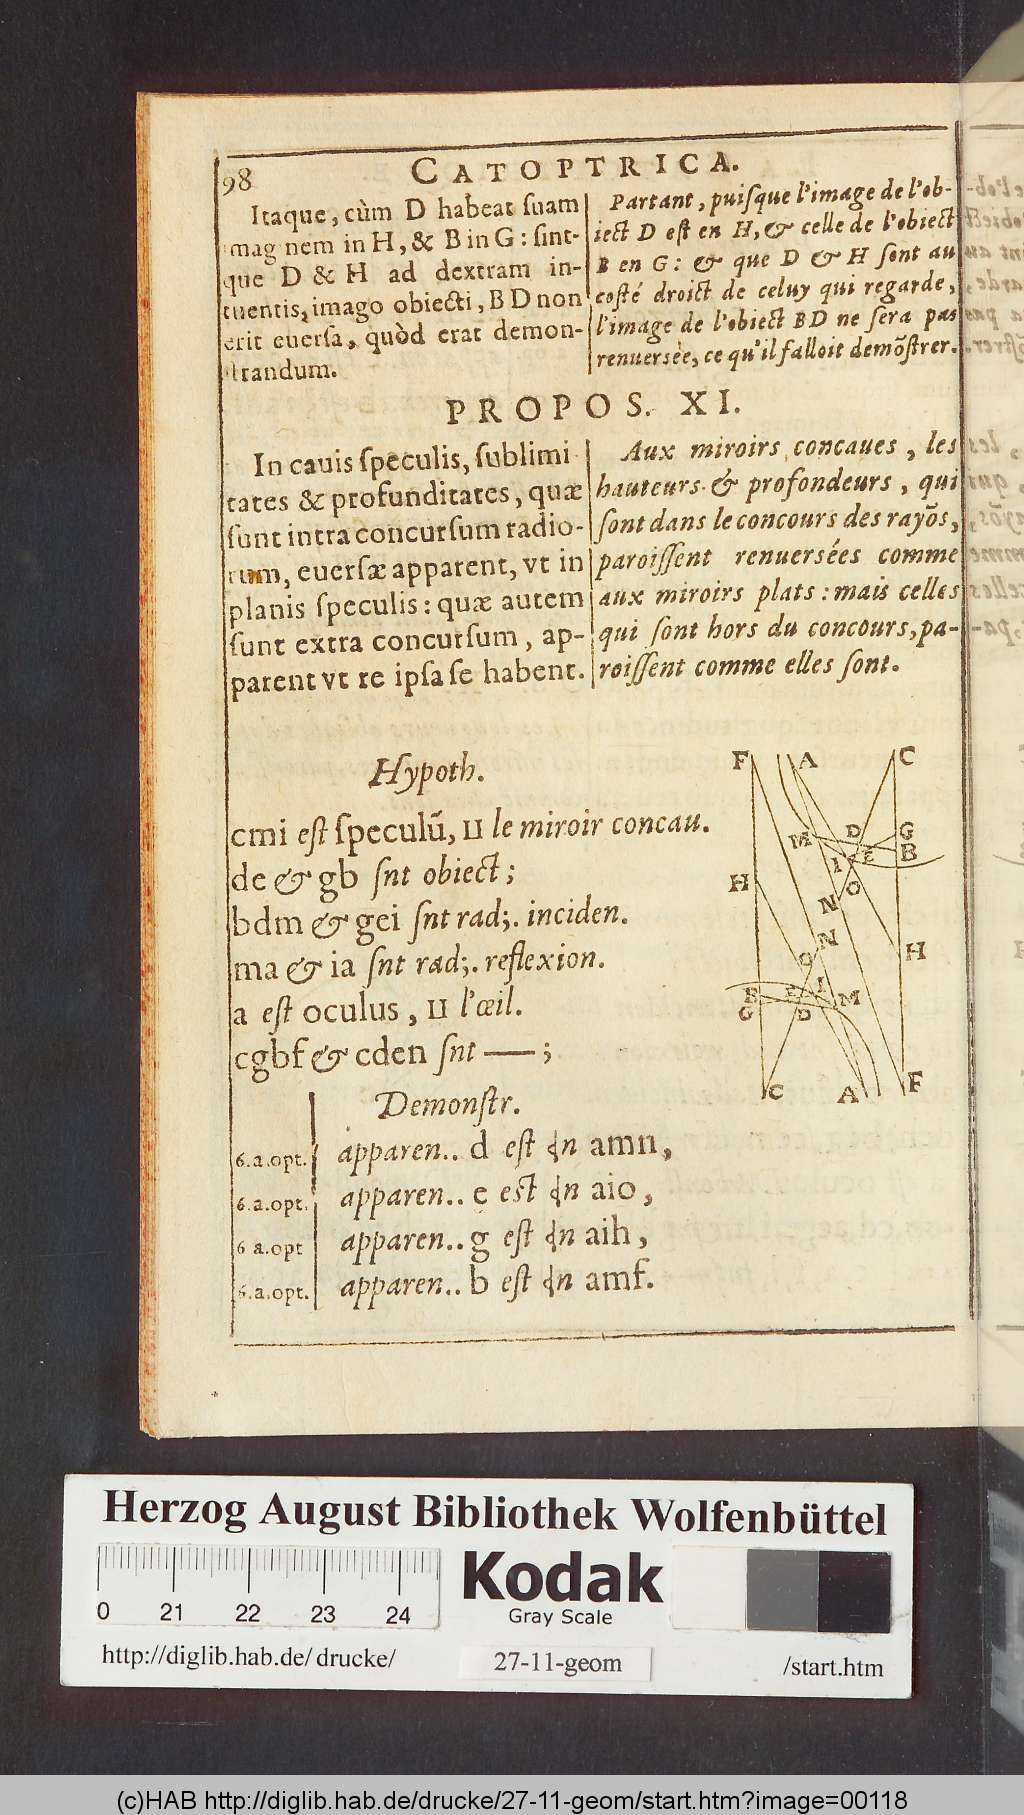 98
CATOPTRICA.
Itaque, cùm D habeat ſuam
mag nem in H, & B in G: ſint-
que D & H ad dextram in-
tuentis, imago obiecti, B D non
erit euerſa, quòd erat demon-
trandum.
Partant, puiſque l'image de l'ob-
iect D eſt en H, & celle de l'obiect
B en G: & que D & H ſont au
coſté droict de celuy qui regarde,
l'image de l'obiect BD ne ſera pas
renuersée, ce qu'il falloit demõſtrer.
PROPOS. XI.
In cauis ſpeculis, ſublimi
tates & profunditates, quæ
ſunt intra concurſum radio-
rum, euerſæ apparent, vt in
planis ſpeculis: quæ autem
ſunt extra concurſum, ap-
parent vt re ipſa ſe habent.
Aux miroirs concaues, les
hauteurs & profondeurs, qui
ſont dans le concours des rayõs,
paroiſſent renuersées comme
aux miroirs plats: mais celles
qui ſont hors du concours, pa-
roiſſent comme elles ſont.
Hypoth.
cmi eſt ſpeculũ, II le miroir concau.
de & gb ſnt obiect;
bdm & gei ſnt rad;. inciden.
ma & ia ſnt rad;. reflexion.
a eſt oculus, II l'œil.
cgbf & cden ſnt —;
Demonſtr.
6.a.opt. apparen.. d eſt ɖn amn,
6.a.opt. apparen.. e eſt ɖn aio,
6 a.opt apparen.. g eſt ɖn aih,
6.a.opt. apparen.. b eſt ɖn amf.
F A C
M D G
I E B
H N O
N H
O
B E I M
G D
C A F
Herzog August Bibliothek Wolfenbüttel
0 21 22 23 24
Kodak
Gray Scale
http://diglib.hab.de/drucke/ 27-11-geom /start.htm
(c)HAB http://diglib.hab.de/drucke/27-11-geom/start.htm?image=00118